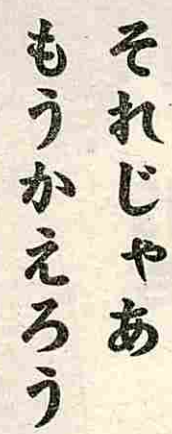 それじゃあ
もうかえろう